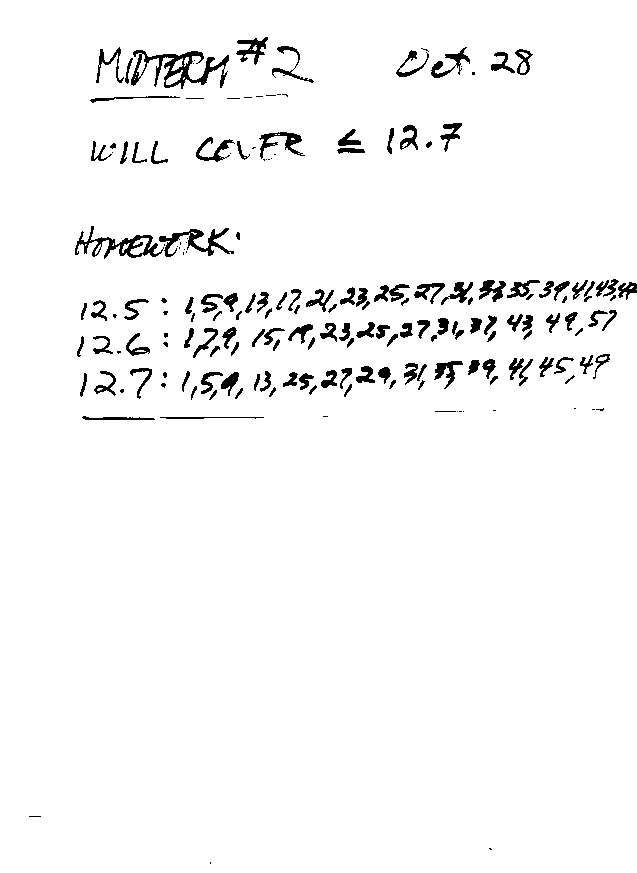 MIDTERM #2 Oct. 28
WILL COVER ≤ 12.7
HOMEWORK:
12.5: 1,5,9,13,17,21,23,25,27,31,33,35,39,41,43,47
12.6: 1,7,9, 15,19,23,25,27,31,37,43,49,57
12.7: 1,5,9,13,25,27,29,31,35,39,41,45,49